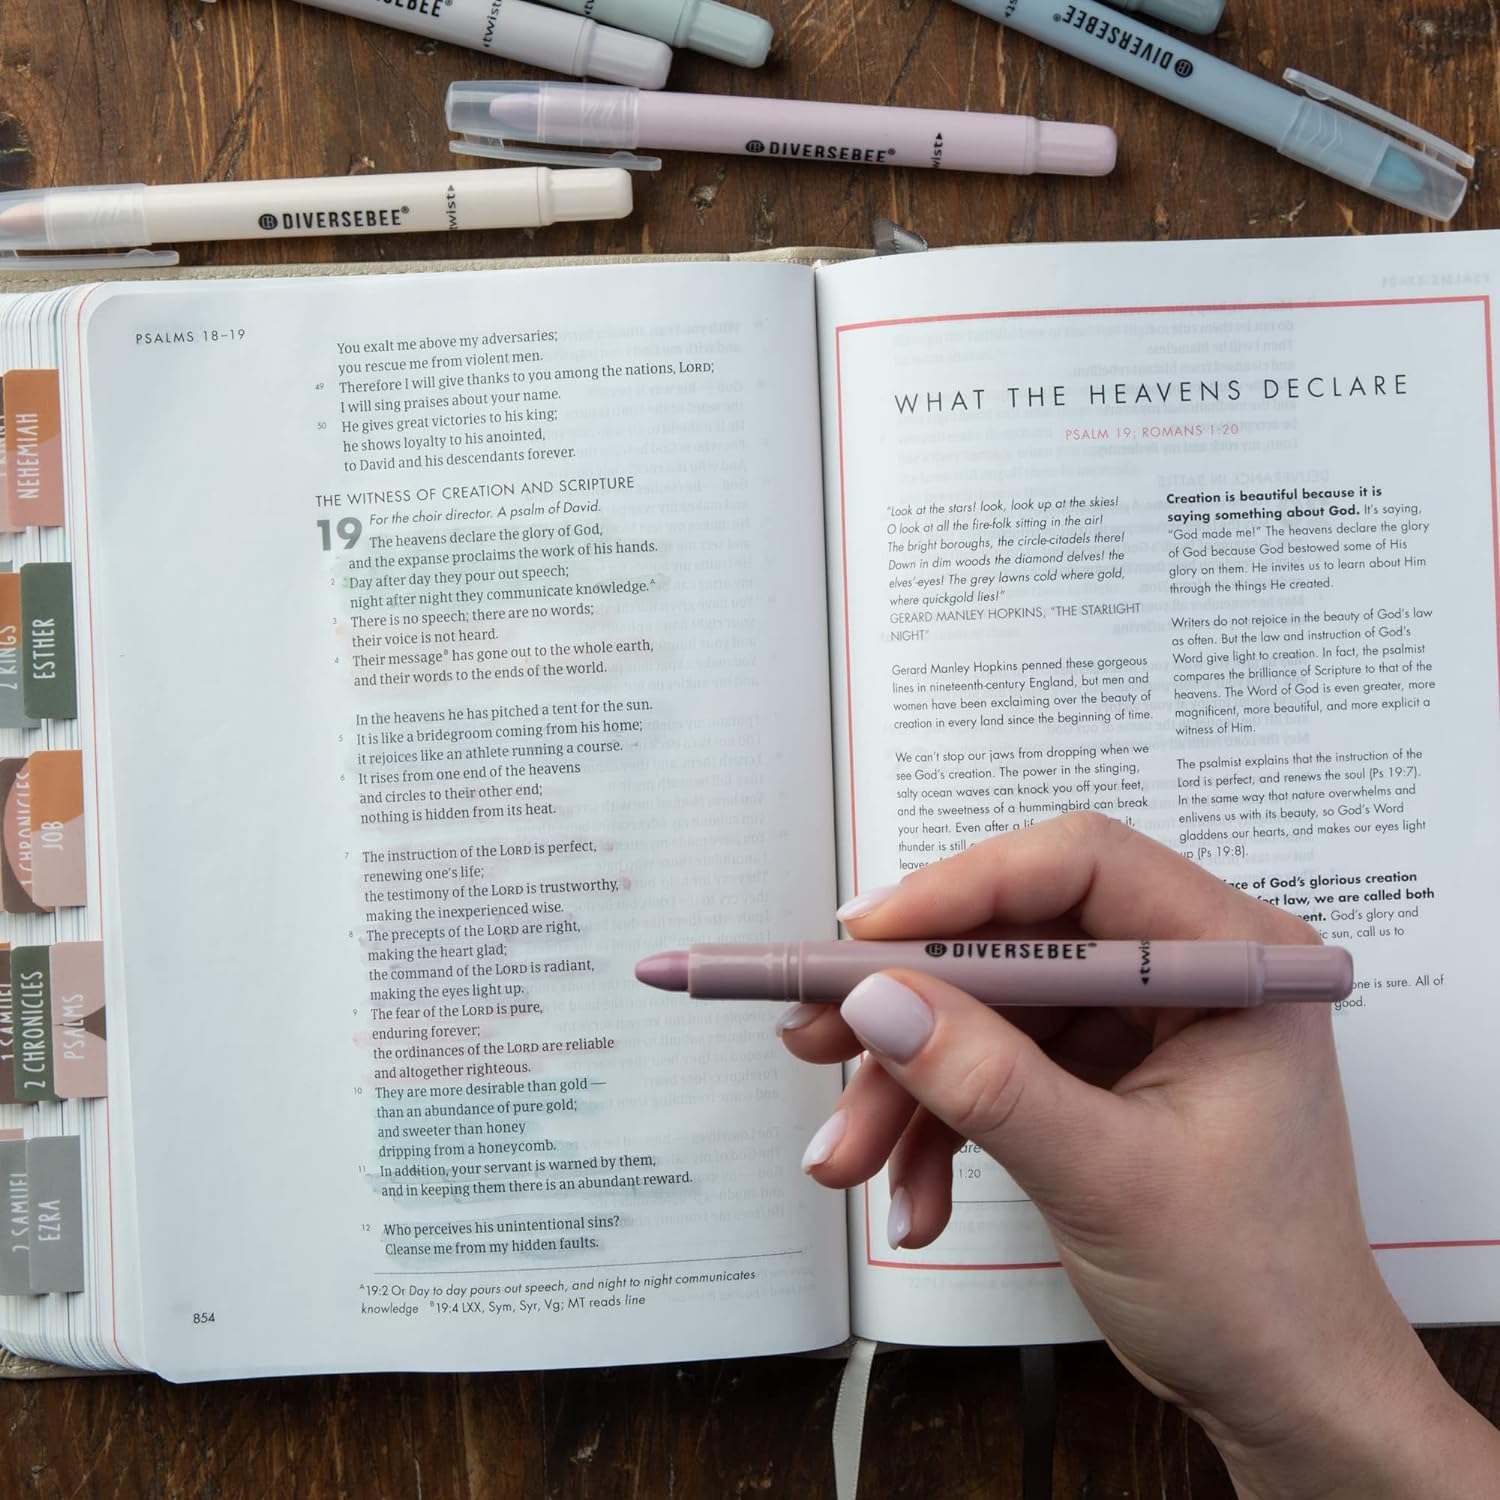 DIVERSEBEE®
twist
DIVERSEBEE®
DIVERSEBEE®
twist
DIVERSEBEE®
twist
NEHEMIAH
2 KINGS
ESTHER
1 CHRONICLES
JOB
1 SAMUEL
2 CHRONICLES
PSALMS
2 SAMUEL
EZRA
PSALMS 18–19
You exalt me above my adversaries;
you rescue me from violent men.
49 Therefore I will give thanks to you among the nations, LORD;
I will sing praises about your name.
50 He gives great victories to his king;
he shows loyalty to his anointed,
to David and his descendants forever.
THE WITNESS OF CREATION AND SCRIPTURE
19 For the choir director. A psalm of David.
The heavens declare the glory of God,
and the expanse proclaims the work of his hands.
2 Day after day they pour out speech;
night after night they communicate knowledge.A
3 There is no speech; there are no words;
their voice is not heard.
4 Their messageB has gone out to the whole earth,
and their words to the ends of the world.
In the heavens he has pitched a tent for the sun.
5 It is like a bridegroom coming from his home;
it rejoices like an athlete running a course.
6 It rises from one end of the heavens
and circles to their other end;
nothing is hidden from its heat.
7 The instruction of the LORD is perfect,
renewing one's life;
the testimony of the LORD is trustworthy,
making the inexperienced wise.
8 The precepts of the LORD are right,
making the heart glad;
the command of the LORD is radiant,
making the eyes light up.
9 The fear of the LORD is pure,
enduring forever;
the ordinances of the LORD are reliable
and altogether righteous.
10 They are more desirable than gold —
than an abundance of pure gold;
and sweeter than honey
dripping from a honeycomb.
11 In addition, your servant is warned by them,
and in keeping them there is an abundant reward.
12 Who perceives his unintentional sins?
Cleanse me from my hidden faults.
A19:2 Or Day to day pours out speech, and night to night communicates
knowledge B19:4 LXX, Sym, Syr, Vg; MT reads line
854
WHAT THE HEAVENS DECLARE
PSALM 19; ROMANS 1:20
"Look at the stars! look, look up at the skies!
O look at all the fire-folk sitting in the air!
The bright boroughs, the circle-citadels there!
Down in dim woods the diamond delves! the
elves'-eyes! The grey lawns cold where gold,
where quickgold lies!"
GERARD MANLEY HOPKINS, "THE STARLIGHT
NIGHT"
Gerard Manley Hopkins penned these gorgeous
lines in nineteenth-century England, but men and
women have been exclaiming over the beauty of
creation in every land since the beginning of time.
We can't stop our jaws from dropping when we
see God's creation. The power in the stinging,
salty ocean waves can knock you off your feet,
and the sweetness of a hummingbird can break
your heart. Even after a it,
thunder is still
1:20
Creation is beautiful because it is
saying something about God. It's saying,
"God made me!" The heavens declare the glory
of God because God bestowed some of His
glory on them. He invites us to learn about Him
through the things He created.
Writers do not rejoice in the beauty of God's law
as often. But the law and instruction of God's
Word give light to creation. In fact, the psalmist
compares the brilliance of Scripture to that of the
heavens. The Word of God is even greater, more
magnificent, more beautiful, and more explicit a
witness of Him.
The psalmist explains that the instruction of the
Lord is perfect, and renews the soul (Ps 19:7).
In the same way that nature overwhelms and
enlivens us with its beauty, so God's Word
gladdens our hearts, and makes our eyes light
up (Ps 19:8).
of God's glorious creation
law, we are called both
God's glory and
sun, call us to
one is sure. All of
good.
DIVERSEBEE®
twist